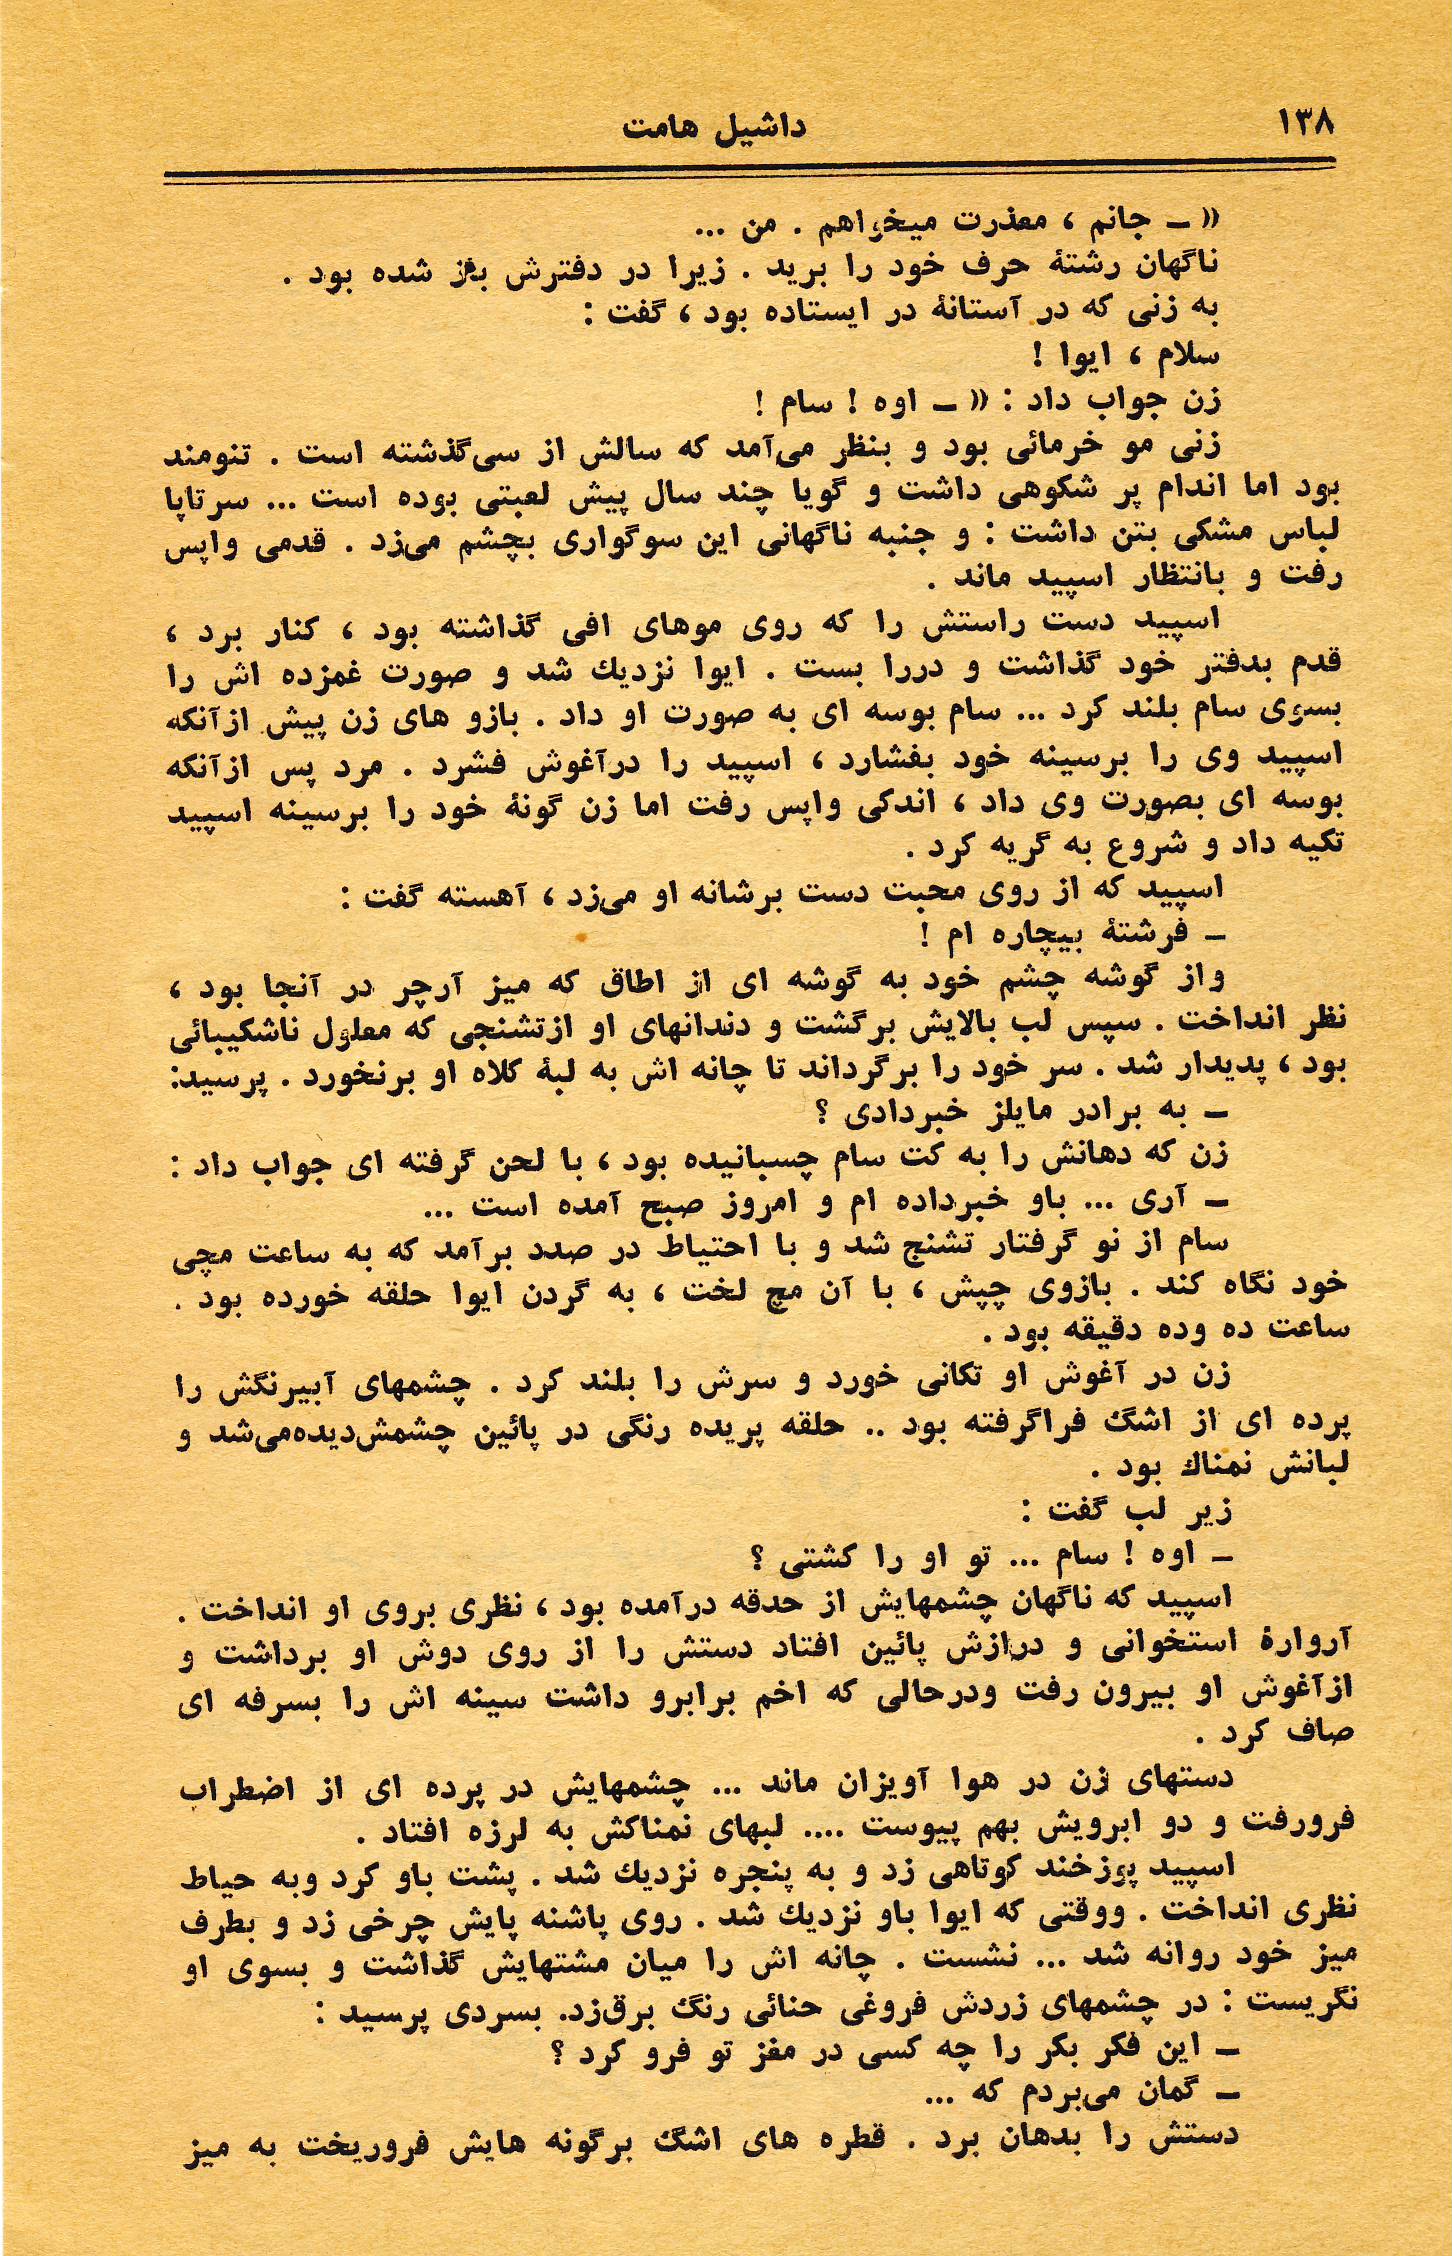 ۱۳۸
داشیل هامت
« ـ جانم ، معذرت میخواهم . من ...
ناگهان رشتهٔ حرف خود را برید . زیرا در دفترش باز شده بود .
به زنی که در آستانهٔ در ایستاده بود ، گفت :
سلام ، ایوا !
زن جواب داد : « ـ اوه ! سام !
زنی مو خرمائی بود و بنظر می‌آمد که سالش از سی‌گذشته است . تنومند
بود اما اندام پر شکوهی داشت و گویا چند سال پیش لعبتی بوده است ... سرتاپا
لباس مشکی بتن داشت : و جنبه ناگهانی این سوگواری بچشم می‌زد . قدمی واپس
رفت و بانتظار اسپید ماند .
اسپید دست راستش را که روی موهای افی گذاشته بود ، کنار برد ،
قدم بدفتر خود گذاشت و دررا بست . ایوا نزدیك شد و صورت غمزده اش را
بسوی سام بلند کرد ... سام بوسه ای به صورت او داد . بازو های زن پیش ازآنکه
اسپید وی را برسینه خود بفشارد ، اسپید را درآغوش فشرد . مرد پس ازآنکه
بوسه ای بصورت وی داد ، اندکی واپس رفت اما زن گونهٔ خود را برسینه اسپید
تکیه داد و شروع به گریه کرد .
اسپید که از روی محبت دست برشانه او می‌زد ، آهسته گفت :
ـ فرشتهٔ بیچاره ام !
واز گوشه چشم خود به گوشه ای از اطاق که میز آرچر در آنجا بود ،
نظر انداخت . سپس لب بالایش برگشت و دندانهای او ازتشنجی که معلول ناشکیبائی
بود ، پدیدار شد . سر خود را برگرداند تا چانه اش به لبهٔ کلاه او برنخورد . پرسید:
ـ به برادر مایلز خبردادی ؟
زن که دهانش را به کت سام چسبانیده بود ، با لحن گرفته ای جواب داد :
ـ آری ... باو خبرداده ام و امروز صبح آمده است ...
سام از نو گرفتار تشنج شد و با احتیاط در صدد برآمد که به ساعت مچی
خود نگاه کند . بازوی چپش ، با آن مچ لخت ، به گردن ایوا حلقه خورده بود .
ساعت ده وده دقیقه بود .
زن در آغوش او تکانی خورد و سرش را بلند کرد . چشمهای آبیرنگش را
پرده ای از اشگ فراگرفته بود .. حلقه پریده رنگی در پائین چشمش‌دیده‌می‌شد و
لبانش نمناك بود .
زیر لب گفت :
ـ اوه ! سام ... تو او را کشتی ؟
اسپید که ناگهان چشمهایش از حدقه درآمده بود ، نظری بروی او انداخت .
آروارهٔ استخوانی و درازش پائین افتاد دستش را از روی دوش او برداشت و
ازآغوش او بیرون رفت ودرحالی که اخم برابرو داشت سینه اش را بسرفه ای
صاف کرد .
دستهای زن در هوا آویزان ماند ... چشمهایش در پرده ای از اضطراب
فرورفت و دو ابرویش بهم پیوست .... لبهای نمناکش به لرزه افتاد .
اسپید پوزخند کوتاهی زد و به پنجره نزدیك شد . پشت باو کرد وبه حیاط
نظری انداخت . ووقتی که ایوا باو نزدیك شد . روی پاشنه پایش چرخی زد و بطرف
میز خود روانه شد ... نشست . چانه اش را میان مشتهایش گذاشت و بسوی او
نگریست : در چشمهای زردش فروغی حنائی رنگ برق‌زد. بسردی پرسید :
ـ این فکر بکر را چه کسی در مغز تو فرو کرد ؟
ـ گمان می‌بردم که ...
دستش را بدهان برد . قطره های اشگ برگونه هایش فروریخت به میز